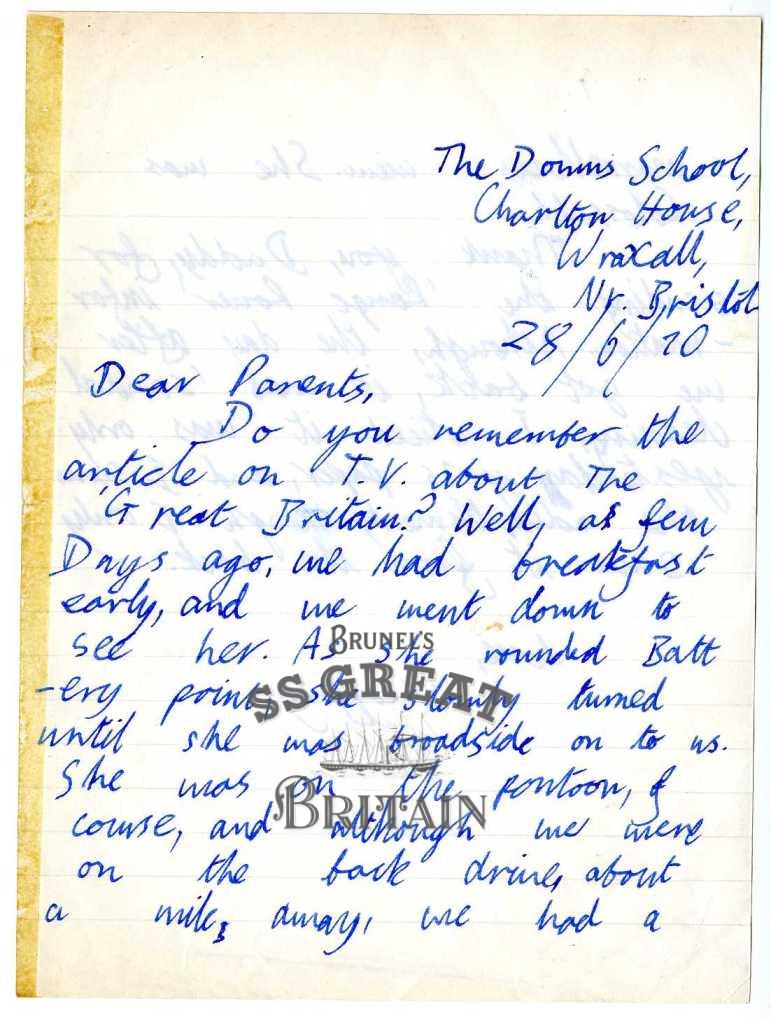 The Downs School,
Charlton House,
Wraxall,
Nr. Bristol
28/6/70
Dear Parents,
Do you remember the
article on T.V. about The
Great Britain? Well, a few
Days ago, we had breakfast
early, and we went down to
see her. As she rounded Batt
-ery point, she slowly turned
until she was broadside on to us.
She was on the pontoon, of
course, and although we were
on the back drive, about
a mile, away, we had a
BRUNEL'S
SS GREAT
BRITAIN